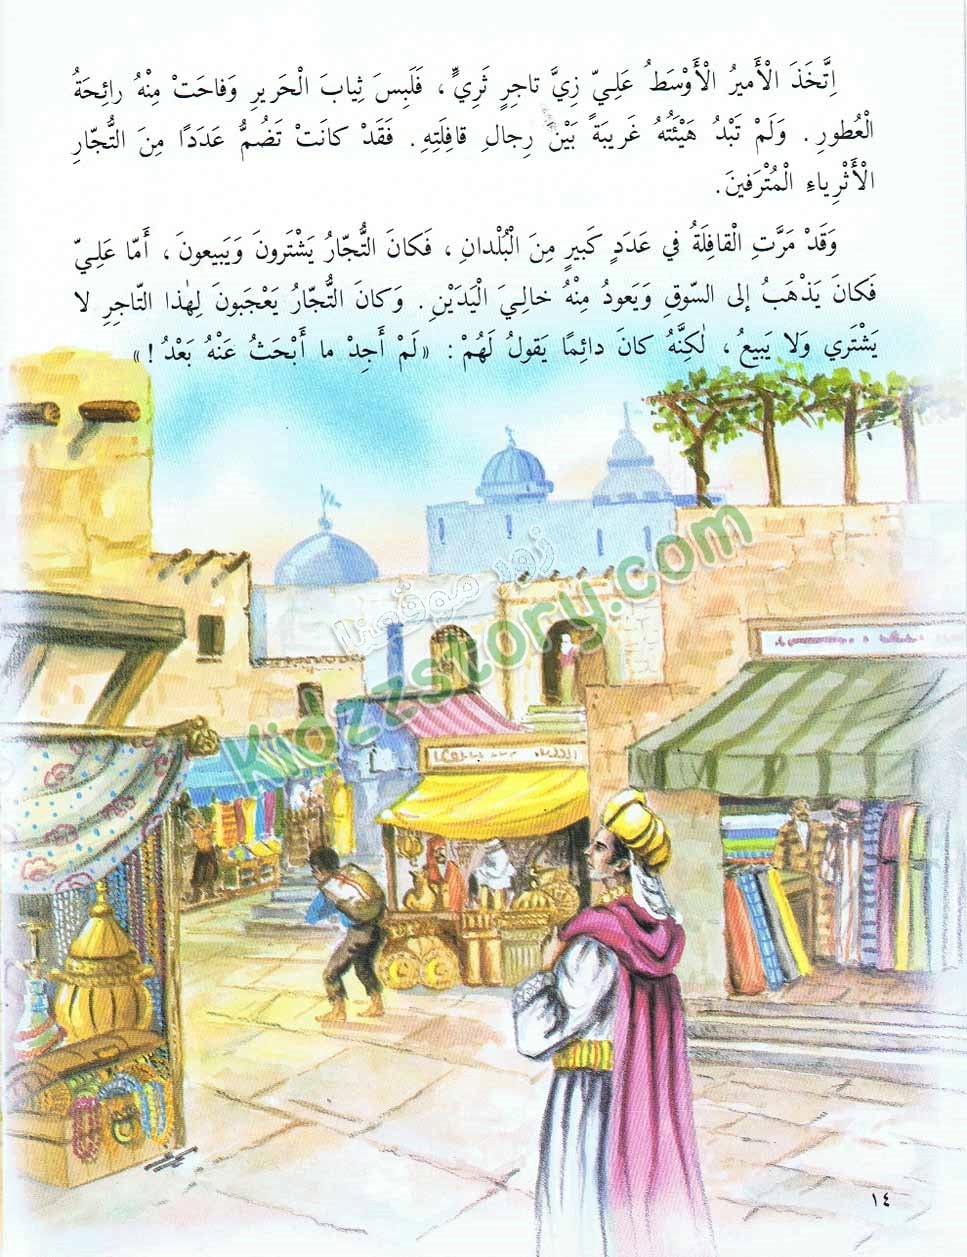 اِتَّخَذَ الْأَميرُ الْأَوْسَطُ عَلِيّ زِيَّ تاجِرٍ ثَرِيٍّ ، فَلَبِسَ ثِيابَ الْحَريرِ وَفاحَتْ مِنْهُ رائِحَةُ
الْعُطورِ . وَلَمْ تَبْدُ هَيْئَتُهُ غَريبَةً بَيْنَ رِجالِ قافِلَتِهِ . فَقَدْ كانَتْ تَضُمُّ عَدَدًا مِنَ التُّجّارِ
الْأَثْرِياءِ الْمُتْرَفينَ .
وَقَدْ مَرَّتِ الْقافِلَةُ في عَدَدٍ كَبيرٍ مِنَ الْبُلْدانِ ، فَكانَ التُّجّارُ يَشْتَرونَ وَيَبيعونَ ، أَمّا عَلِيّ
فَكانَ يَذْهَبُ إلى السّوقِ وَيَعودُ مِنْهُ خالِيَ الْيَدَيْنِ . وَكانَ التُّجّارُ يَعْجَبونَ لِهٰذا التّاجِرِ لا
يَشْتَري وَلا يَبيعُ ، لٰكِنَّهُ كانَ دائِمًا يَقولُ لَهُمْ : «لَمْ أَجِدْ ما أَبْحَثُ عَنْهُ بَعْدُ !»
زور موقعنا
Kidzzstory.com
١٤